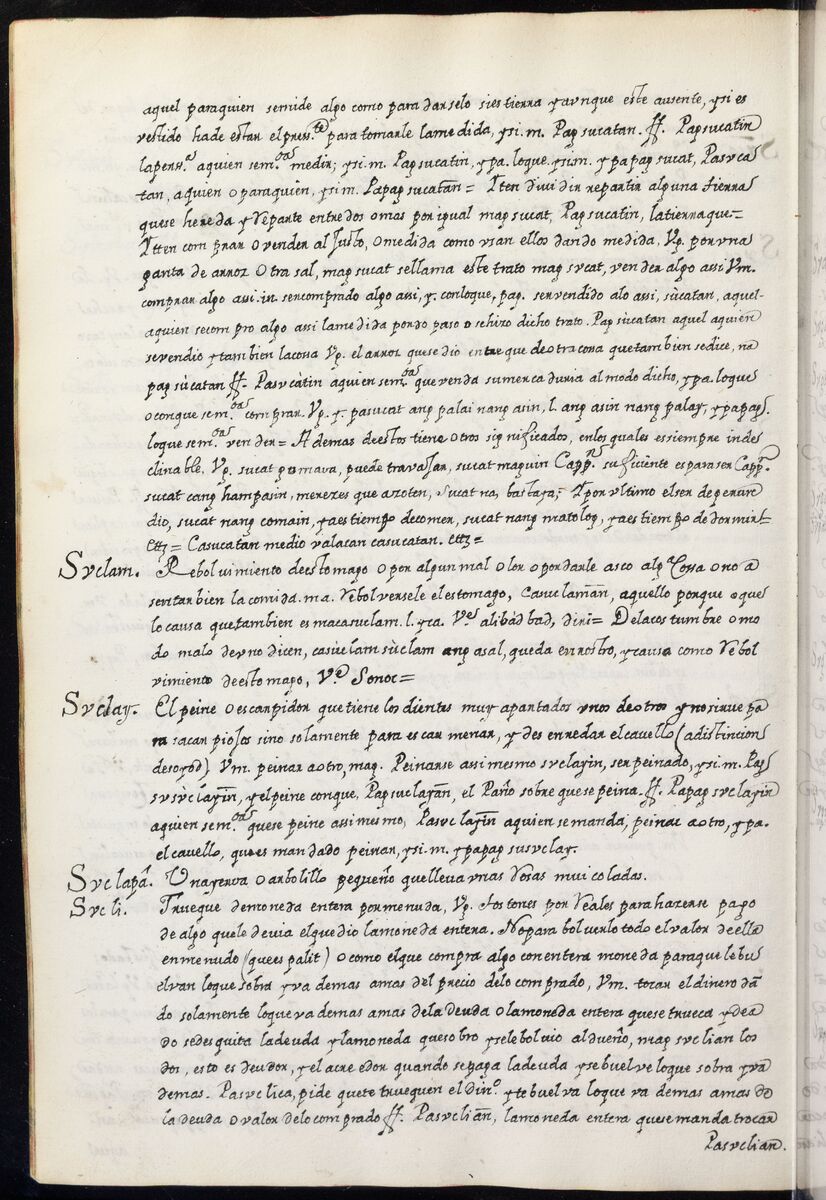 aquel paraquien semide algo como para darselo sies tierra yaunque este ausente, ysi es
vestido hade estar el press.te para tomarle lamedida, ysi.m. Pagsucatan. ff. Pagsucatin
lapers.a aquien sem.da medir; ysi.m. Pagsucatin, ypa. loque. ysi.m. ypapag sucat, Pasuca
tan, aquien o paraquien, ysi.m. Papagsucatan = Yten dividir repartir alguna tierra
quese hereda y Reparte entre dos o mas por igual magsucat, Pagsucatin, latierra que =
Ytten comprar o vender al Justo, o medida como usan ellos dando medida, Vg. por una
ganta de arroz otra sal, magsucat sellama este trato magsucat, vender algo assi Vm.
comprar algo assi. in. sercomprado algo assi, y. conloque, pag. servendido alo assi, sùcatan, aquel-
aquien secompro algo assi lamedida pordo paso o sehizo dicho trato. Pagsùcatan aquel aquien
sevendio ytambien lacossa Vg. el arroz quese dio entreque deotra cossa que tambien sedice, na
pagsùcatan ff. Pasucàtin aquien sem.da que venda sumercaduria al modo dicho, ypa. loque
oconque sem.da comprar. Vg. y. pasucat ang palai nang asin, l. ang asin nang palay, ypapag.
loque sem.da vender = Ademas deestos tiene otros significados, enlos quales essiempre inde
clinable. Vg. sucat gumava, puede travajar, sucat maguin Capp.n suficiente espara ser Capp.n
sucat cang hampasin, mereces que azoten, sucat na, bastaya; Y por ultimo elser de gerun
dio, sucat nang comain, yaes tiempo decomer, sucat nang matolog, yaes tiempo de dormir =
ettz = Casucatan medio valacan casucatan. ettz =
Suclam. Rebolvimiento deestomago o per algun mal olor o pordarle asco alg.a Cossa o no a
sentar bien la comida. ma. Rebolversele el estomago, Casuclaman, aquello porque o que
lo causa que tambien es macasuclam. l. yca. Ve alibàdbad, dirì = Delacostumbre o mo
do malo deuno dicen, casùclam sùclam ang asal, queda enrostro, ycausa como Rebol
vimiento deestomago, Ve Sonoc =
Suclay. El peine o escarpidor que tiene los dientes muy apartados unos de otros y no sirve pa
ra sacar piojos sino solamente para escarmenar, y desenredar el cavello (adistincion
desoyod) Vm. peinar a otro, mag. Peinarse assimesmo suclayin, ser peinado, ysi.m. Pag
susùclayin, yelpeine conque, Pagsuclayan, el Paño sobre quese peina. ff. Papagsuclayin
aquien sem.da quese peine assimesmo, Pasuclayin aquien semanda, peinar aotro, ypa.
el cavello, quees mandado peinar, ysi.m. ypapagsusuclay.
Suclapa. Unayerva o arbolillo pequeño quelleva unas Rosas mui coladas.
Sucli. Trueque demoneda entera por menuda, Vg. tostones por Reales para hazerse pago
de algo quelo devia elque dio lamoneda entera. No para bolverlo todo el valor deella
enmenudo (quees palit) o como elque compra algo con entera moneda paraque lebu
elvan loque sobra yva demas amas del precio delo comprado, Vm. tocar el dinero dan
do solamente loque va demas amas de la deuda o lamoneda entera quese trueca ydea
do sedesquita ladeuda ylamoneda quesobro ysele bolvio al dueño, magsuclian los
dos, esto es deudor, yel acreedor quando sepaga ladeuda ysebuelve loque sobra yva
demas. Pasuclica, pide quete truequen el din.o yte buelva loque va demas amas de
la deuda o valor delo comprado ff. Pasuclian, lamoneda entera quese manda trocar
Pasuclian.